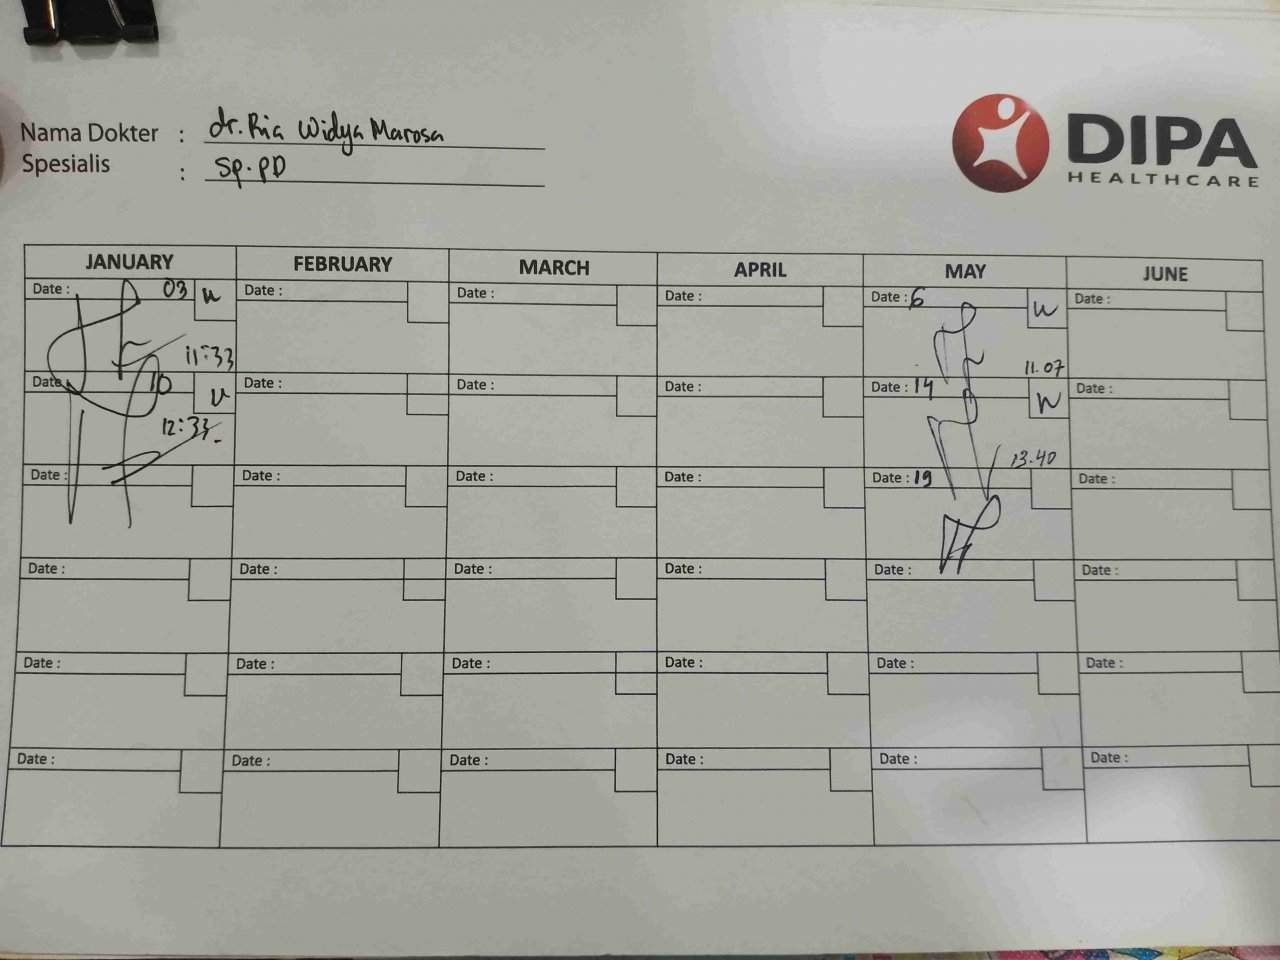 Nama Dokter : dr. Ria Widya Marosa
Spesialis : Sp.PD
DIPA
HEALTHCARE
JANUARY FEBRUARY MARCH APRIL MAY JUNE
Date : 03 Date : Date : Date : Date : 6 Date :
11:33 11.07
Date 10 Date : Date : Date : Date : 14 Date :
12:33 13.40
Date : Date : Date : Date : Date : 19 Date :
Date : Date : Date : Date : Date : Date :
Date : Date : Date : Date : Date : Date :
Date : Date : Date : Date : Date : Date :